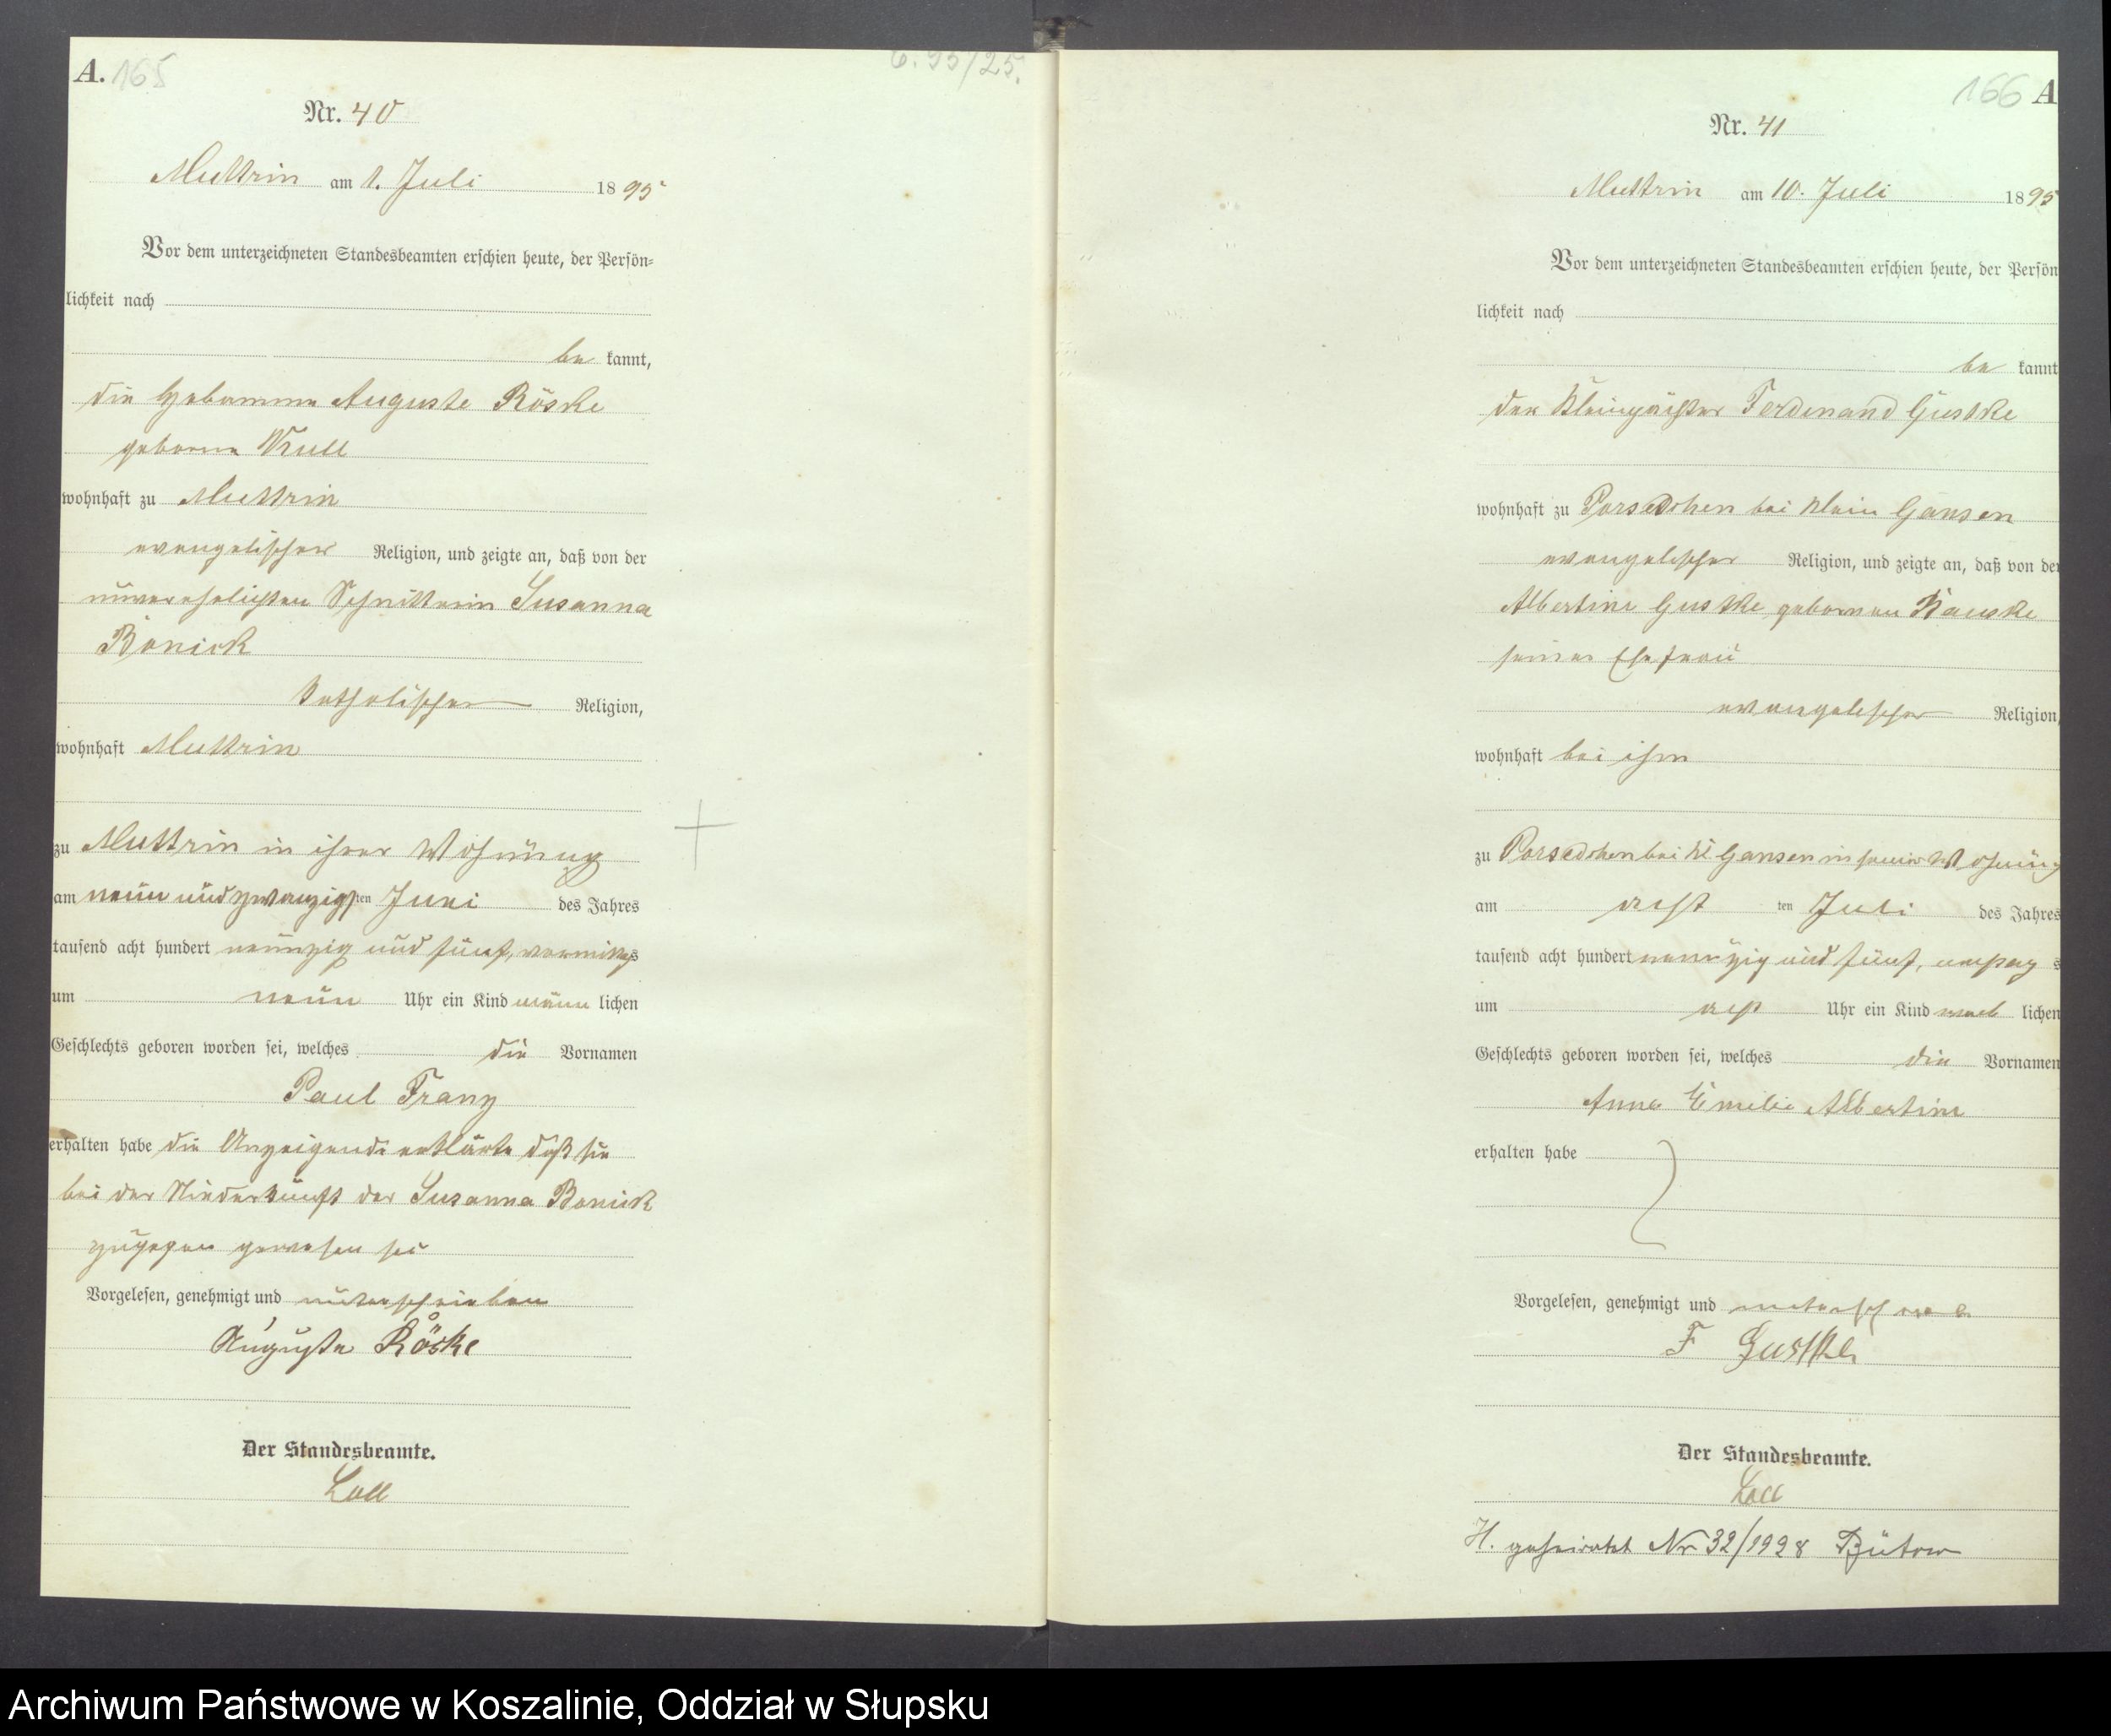 A. 165
6. 95/25.
Nr. 40
Muttrin am 1. Juli 1895
Vor dem unterzeichneten Standesbeamten erschien heute, der Persön=
lichkeit nach
be kannt,
die Hebamme Auguste Röske
geborne Krull
wohnhaft zu Muttrin
evangelischer Religion, und zeigte an, daß von der
unverehelichten Schnitterin Susanna
Bonick
katholischer Religion,
wohnhaft Muttrin
zu Muttrin in ihrer Wohnung
am neun und zwanzigsten Juni des Jahres
tausend acht hundert neunzig und fünf, vormittags
um neun Uhr ein Kind männ lichen
Geschlechts geboren worden sei, welches die Vornamen
Paul Franz
erhalten habe die Anzeigende erklärte daß sie
bei der Niederkunft der Susanna Bonick
zugegen gewesen sei
Vorgelesen, genehmigt und unterschrieben
Auguste Röske
Der Standesbeamte.
Loll
166 A
Nr. 41
Muttrin am 10. Juli 1895
Vor dem unterzeichneten Standesbeamten erschien heute, der Persön
lichkeit nach
be kannt
der Kleinpächter Ferdinand Gustke
wohnhaft zu bei Klein Gansen
evangelischer Religion, und zeigte an, daß von der
Albertine Gustke gebornen
seiner Ehefrau
evangelischer Religion,
wohnhaft bei ihm
zu bei Kl. Gansen in seiner Wohnung
am acht ten Juli des Jahres
tausend acht hundert neunzig und fünf, s
um acht Uhr ein Kind weib lichen
Geschlechts geboren worden sei, welches die Vornamen
Anna Emilie Albertine
erhalten habe
Vorgelesen, genehmigt und unterschrieben
F Gustke
Der Standesbeamte.
Loll
H. geheiratet Nr 32/1928 Bütow
Archiwum Państwowe w Koszalinie, Oddział w Słupsku